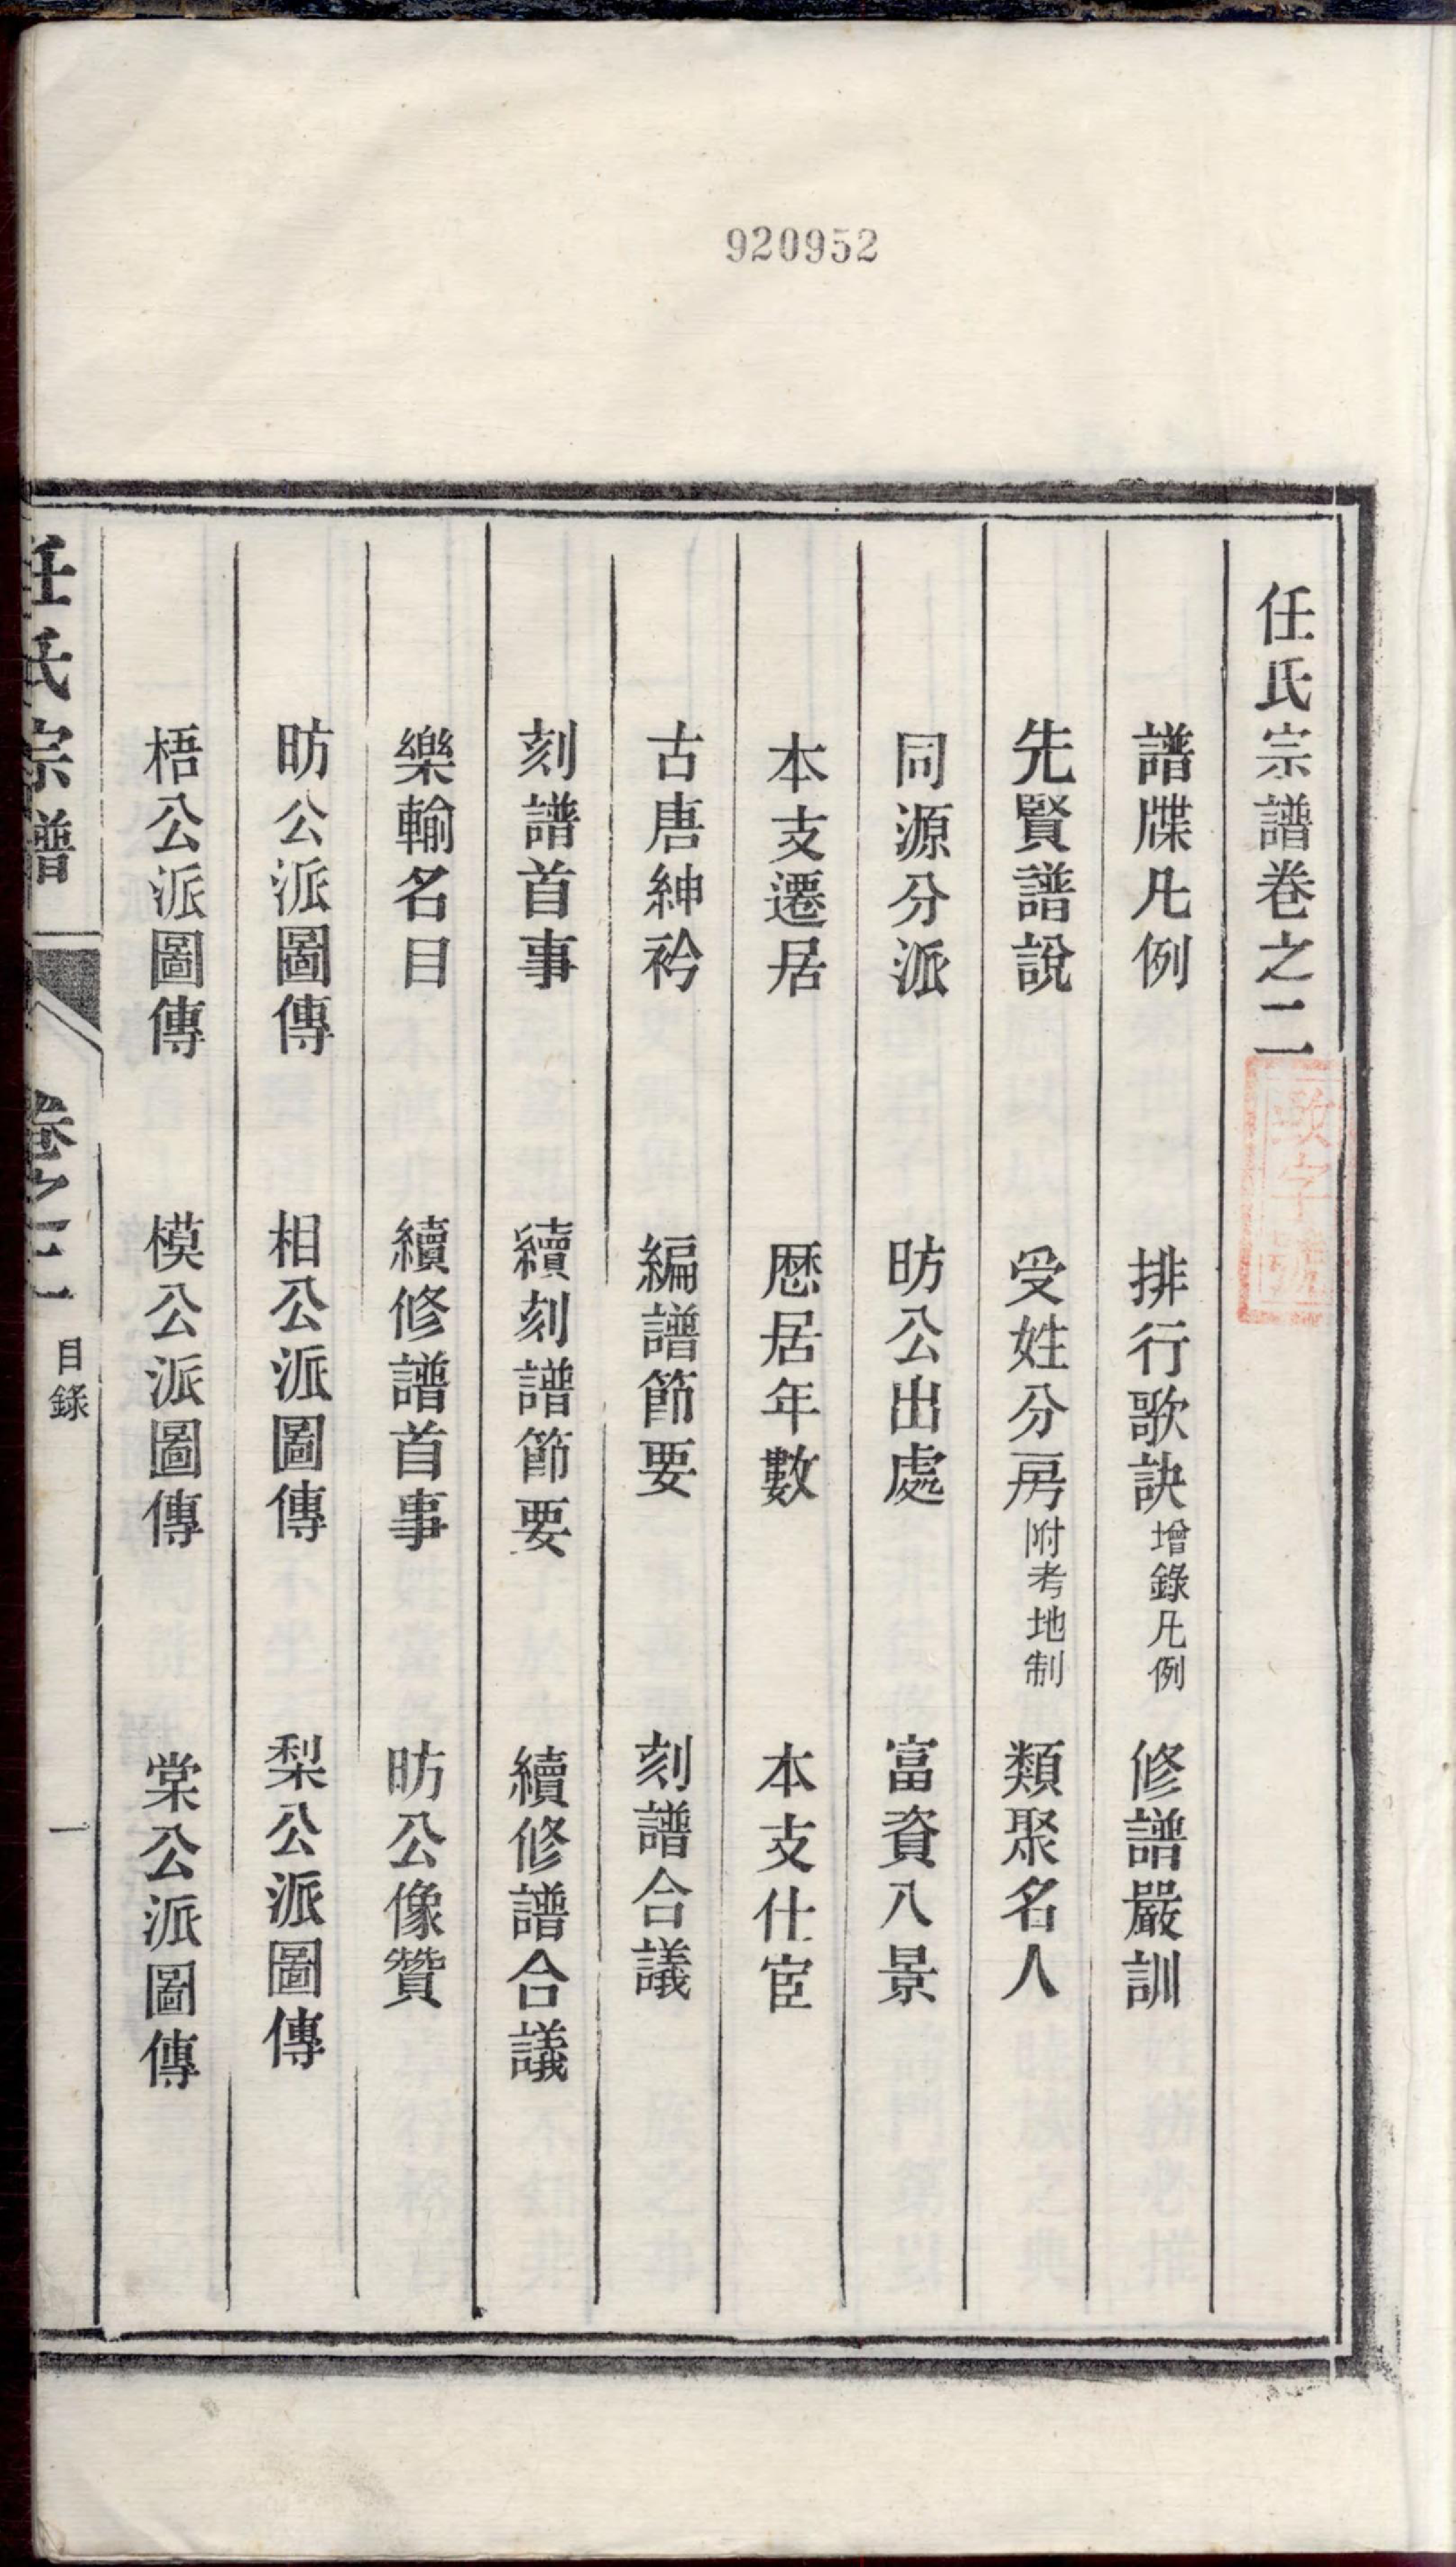 920952
任氏宗譜卷之二
譜牒凡例 排行歌訣增錄凡例 修譜嚴訓
先賢譜說 受姓分房附考地制 類聚名人
同源分派 昉公出處 富資八景
本支遷居 歷居年數 本支仕宦
古唐紳衿 編譜節要 刻譜合議
刻譜首事 續刻譜節要 續修譜合議
樂輸名目 續修譜首事 昉公像贊
昉公派圖傳 相公派圖傳 梨公派圖傳
梧公派圖傳 模公派圖傳 棠公派圖傳
任氏宗譜 卷之二 目錄 一